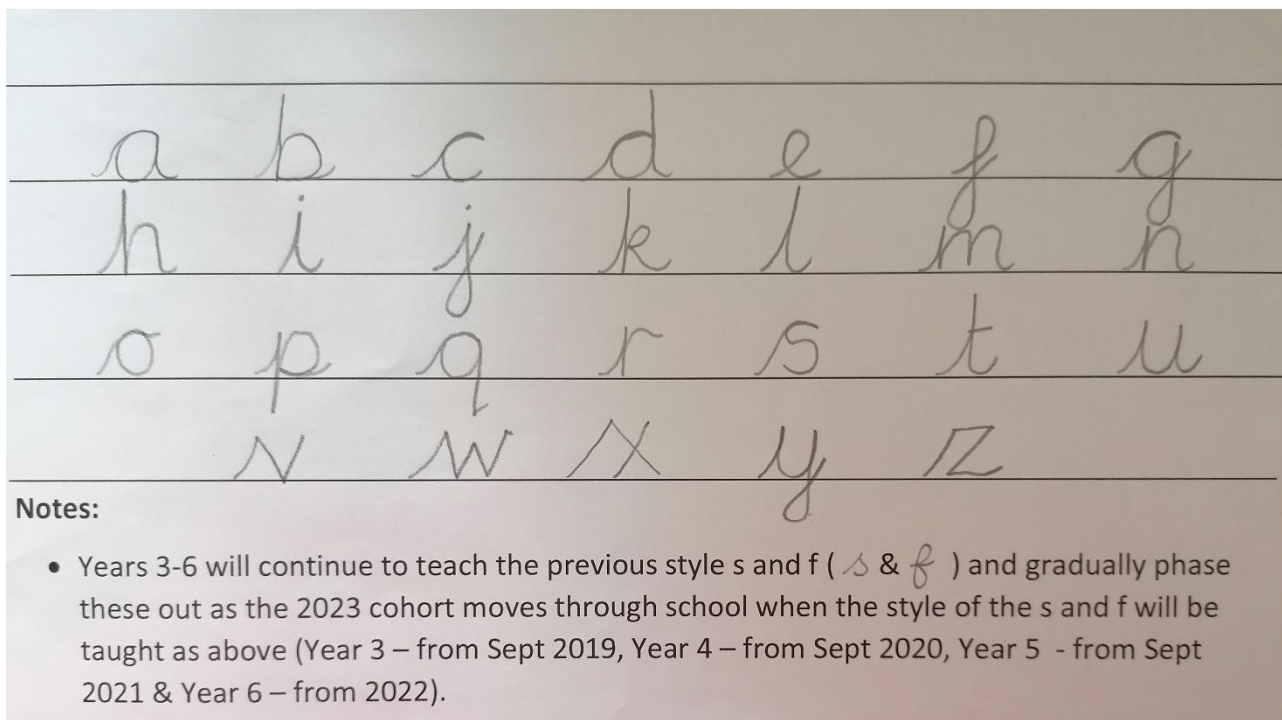 a b c d e f g
h i j k l m n
o p q r s t u
v w x y z
Notes:
• Years 3-6 will continue to teach the previous style s and f ( s & f ) and gradually phase
these out as the 2023 cohort moves through school when the style of the s and f will be
taught as above (Year 3 – from Sept 2019, Year 4 – from Sept 2020, Year 5 - from Sept
2021 & Year 6 – from 2022).